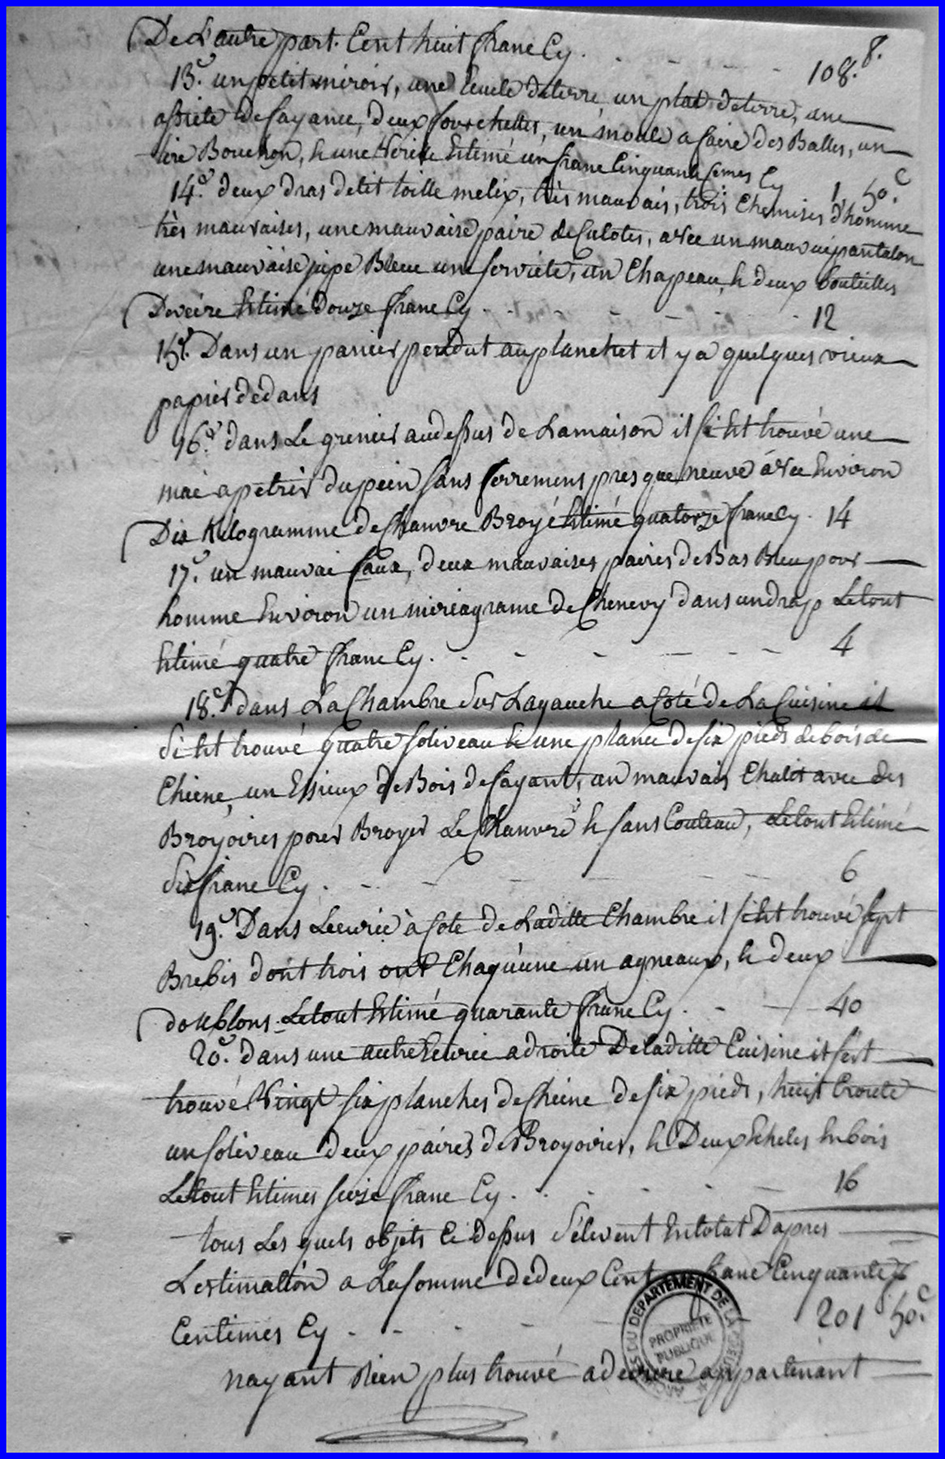 De Lautre part. Cent huit franc Cy. - - - - 108. 8.
13.e un petit miroir, une Ecuele de terre, un plat de terre, une
assiete de fayance, deux fourchettes, un moule a faire des Balles, un
tire Bouchon, & une Estimé un franc Cinquante Cmes Cy 1. 50.c
14.e deux dras de lit toille melix, très mauvais, trois Chemises d'homme
très mauvaises, une mauvaise paire de Culotes, avec un mauvais pantalon
une mauvaise jupe Bleue une serviete, un Chapeau, & deux bouteilles
De veire Estimé Douze franc Cy - - - - - - 12
15.e Dans un panier pendut au planchet il y a quelques vieux
papier dedans
16.e dans Le grenier audessus de Lamaison il s'est trouvé une
mai a petrir du pein sans ferremens presque neuve avec Environ
Dix Kilogramme de Chanvre Broyé Estimé quatorze franc Cy. 14
17.e un mauvai faux, deux mauvaises paires de Bas Bleu pour
homme Environ un miriagrame de Chenevy dans un drap Le tout
Estimé quatre franc Cy. - - - - - - 4
18.e dans La Chambre Sur Lagauche a Coté de La Cuisine il
S'est trouvé quatre soliveau & une planche de six pieds de bois de
Chiene, un Essieux de Bois de fayant, un mauvais Chalit avec des
Broyoires pour Broyer Le Chanvre & sans Couteau, Le tout Estimé
Six franc Cy. - - - - 6
19.e Dans Lecurie à Cote de Ladille Chambre il s'est trouvé sept
Brebis dont trois ont Chaquune un agneaux, & deux
doublons. Le tout Estimé quarante franc Cy. - - - 40
20.e dans une autre Ecurie a droite De laditte Cuisine il s'est
trouvé Vingt six planches de Cheine de six pieds, huit Croute
un soliveau deux paires de Broyoires, & Deux Echeles En bois
Le tout Estimes seize franc Cy. - - - - 16
tous Les quels objets Ci Dessus S'élevent En total D'apres
L'estimation a La somme de deux Cent franc Cinquante
Centimes Cy - - - - 201 50.c
nayant Rien plus trouvé a decrire appartenant
DU DEPARTEMENT DE LA
PROPRIETE
PUBLIQUE